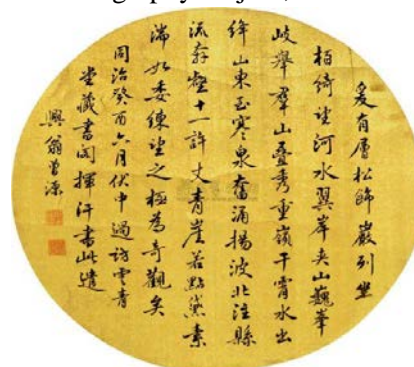 爰有層松飾巖列坐
柏綺望河水翼岸夾山巍峯
岐舉羣山疊秀重嶺干霄水出
絳山東玉寒泉奮涌揚波北注縣
流奔壑十一許丈青崖若點黛素
湍如委練望之極為奇觀矣
同治癸酉六月伏中過訪雲青
堂藏書閣揮汗書此遣
興翁曾源